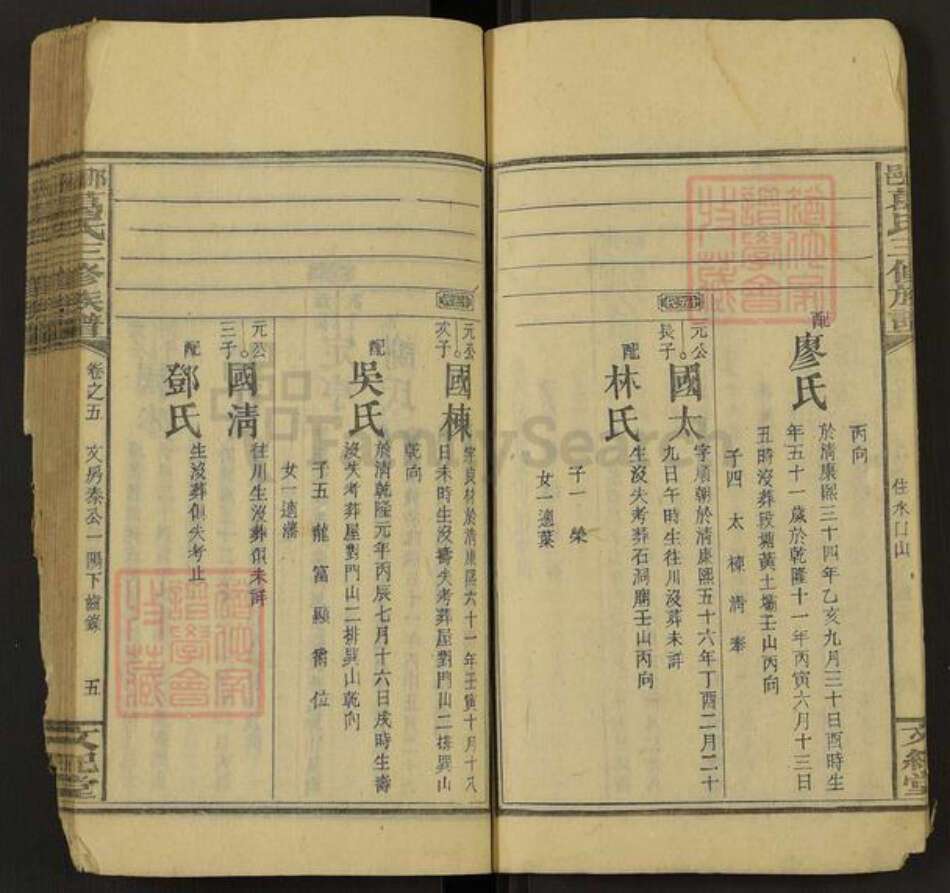 丙向
配
廖氏
於清康熙三十四年乙亥九月三十日酉時生
年五十一歲於乾隆十一年丙寅六月十三日
丑時沒葬段塘黃土塴壬山丙向
子四 太 棟 清 奉
元公
長子
國太
字順朝於清康熙五十六年丁酉二月二十
九日午時生往川沒葬未詳
配
林氏
生沒失考葬石洞廟壬山丙向
子一 榮
女一適葉
住水口山
元公
次子
國棟
字良材於清康熙六十一年壬寅十月十八
日未時生沒壽失考葬屋對門山二排巽山
乾向
配
吳氏
於清乾隆元年丙辰七月十六日戌時生壽
沒失考葬屋對門山二排巽山乾向
子五 龍 富 顯 爵 位
女一適潘
元公
三子
國清
往川生沒葬俱未詳
配
鄧氏
生沒葬俱失考止
氏三修族譜
卷之五
文房泰公一陽下齒錄
五
文紀堂
FamilySearch